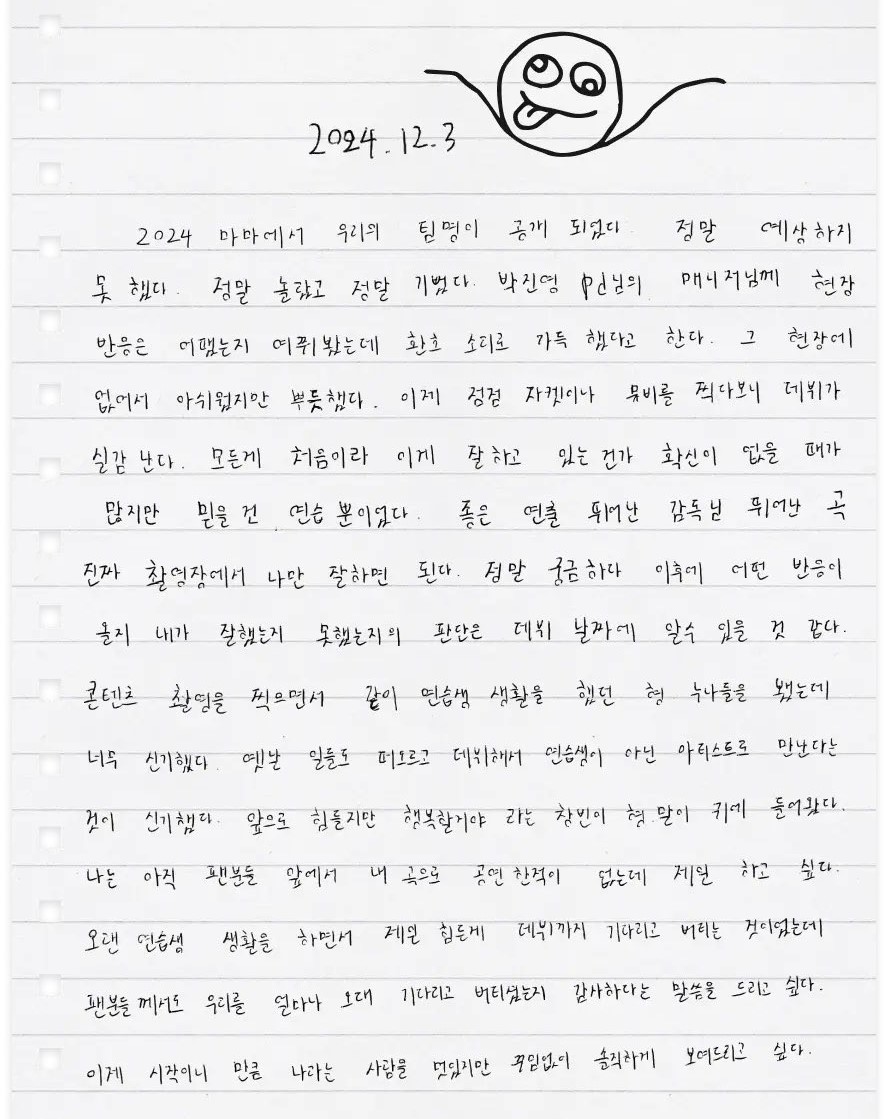 2024.12.3
2024 마마에서 우리의 팀명이 공개 되었다. 정말 예상하지
못 했다. 정말 놀랐고 정말 기뻤다. 박진영 pd님의 매니저님께 현장
반응은 어땠는지 여쭤봤는데 환호 소리로 가득 했다고 한다. 그 현장에
없어서 아쉬웠지만 뿌듯했다. 이제 점점 자켓이나 뮤비를 찍다보니 데뷔가
실감 난다. 모든게 처음이라 이게 잘하고 있는 건가 확신이 없을 때가
많지만 믿을 건 연습 뿐이었다. 좋은 연출 뛰어난 감독님 뛰어난 곡
진짜 촬영장에서 나만 잘하면 된다. 정말 궁금하다 이후에 어떤 반응이
올지 내가 잘했는지 못했는지의 판단은 데뷔 날짜에 알수 있을 것 같다.
콘텐츠 촬영을 찍으면서 같이 연습생 생활을 했던 형 누나들을 뵀는데
너무 신기했다. 옛날 일들도 떠오르고 데뷔해서 연습생이 아닌 아티스트로 만난다는
것이 신기했다. 앞으로 힘들지만 행복할거야 라는 창빈이 형 말이 귀에 들어왔다.
나는 아직 팬분들 앞에서 내 곡으로 공연 한적이 없는데 제일 하고 싶다.
오랜 연습생 생활을 하면서 제일 힘든게 데뷔까지 기다리고 버티는 것이었는데
팬분들께서도 우리를 얼마나 오래 기다리고 버티셨는지 감사하다는 말씀을 드리고 싶다.
이제 시작이니 만큼 나라는 사람을 멋있지만 꾸밈없이 솔직하게 보여드리고 싶다.